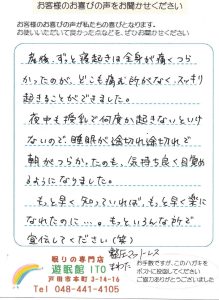 お客様のお喜びの声をお聞かせください
お客様のお喜びの声が私たちの喜びとなります。
お使いいただいて良かった点などを、ぜひお聞かせください。
産後、ずっと寝起きは全身が痛くつら
かったのが、どこも痛む所がなく、スッキリ
起きることができました。
夜中も授乳で何度か起きないといけ
ないので、睡眠が途切れ途切れで
朝がつらかったのも、気持ち良く目覚め
るようになりました。
もっと早く知っていれば、もっと早く楽に
なれたのに…。もっといろんな所で
宣伝してください(笑)
眠りの専門店
遊眠館 ITO
戸田市本町 3-14-16
Tel 048-441-4105
お手数ですが、このハガキを
ポストに投函してください
ご協力ありがとうございました